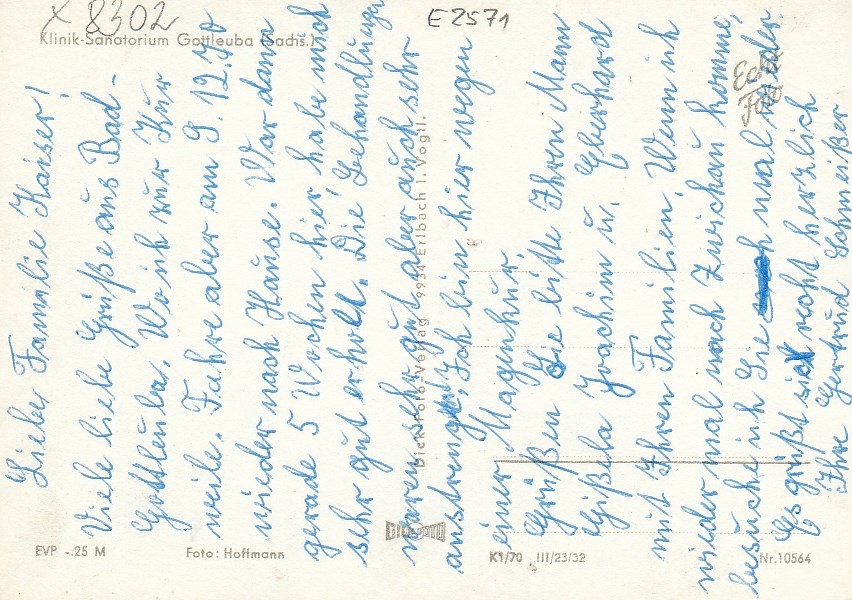 X 8302
E2571
Klinik-Sanatorium Gottleuba (Sachs.)
Echt
Foto
Liebe Familie Kaiser!
Viele liebe Grüße aus Bad-
Gottleuba. Wo ich zur Kur
weile. Fahre aber am 9.12.70
wieder nach Hause. War dann
gerade 5 Wochen hier habe mich
sehr gut erholt. Die Behandlungen
waren sehr gut aber auch sehr
anstreng. Ich bin hier wegen
einer Magenkur.
Grüßen Sie bitte Ihren Mann
Gisela Joachim u. Eberhard
mit Ihren Familien. Wenn ich
wieder mal nach Zwickau komme,
besuche ich Sie mal wieder.
Es grüßt sich recht herzlich
Ihre Gertrud Schmeißer
Dick-Foto-Verlag 9934 Erlbach i. Vogtl.
DICK FOTO
EVP -.25 M
Foto: Hoffmann
K1/70 III/23/32
Nr. 10564